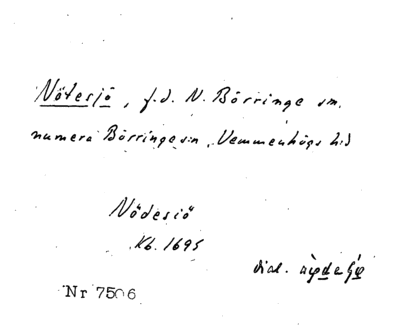 Nötesjö, f.d. N. Börringe sn.
numera Börringe sn, Vemmenhögs hd
Nödesiö
Kb. 1695
dial.
Nr 7506